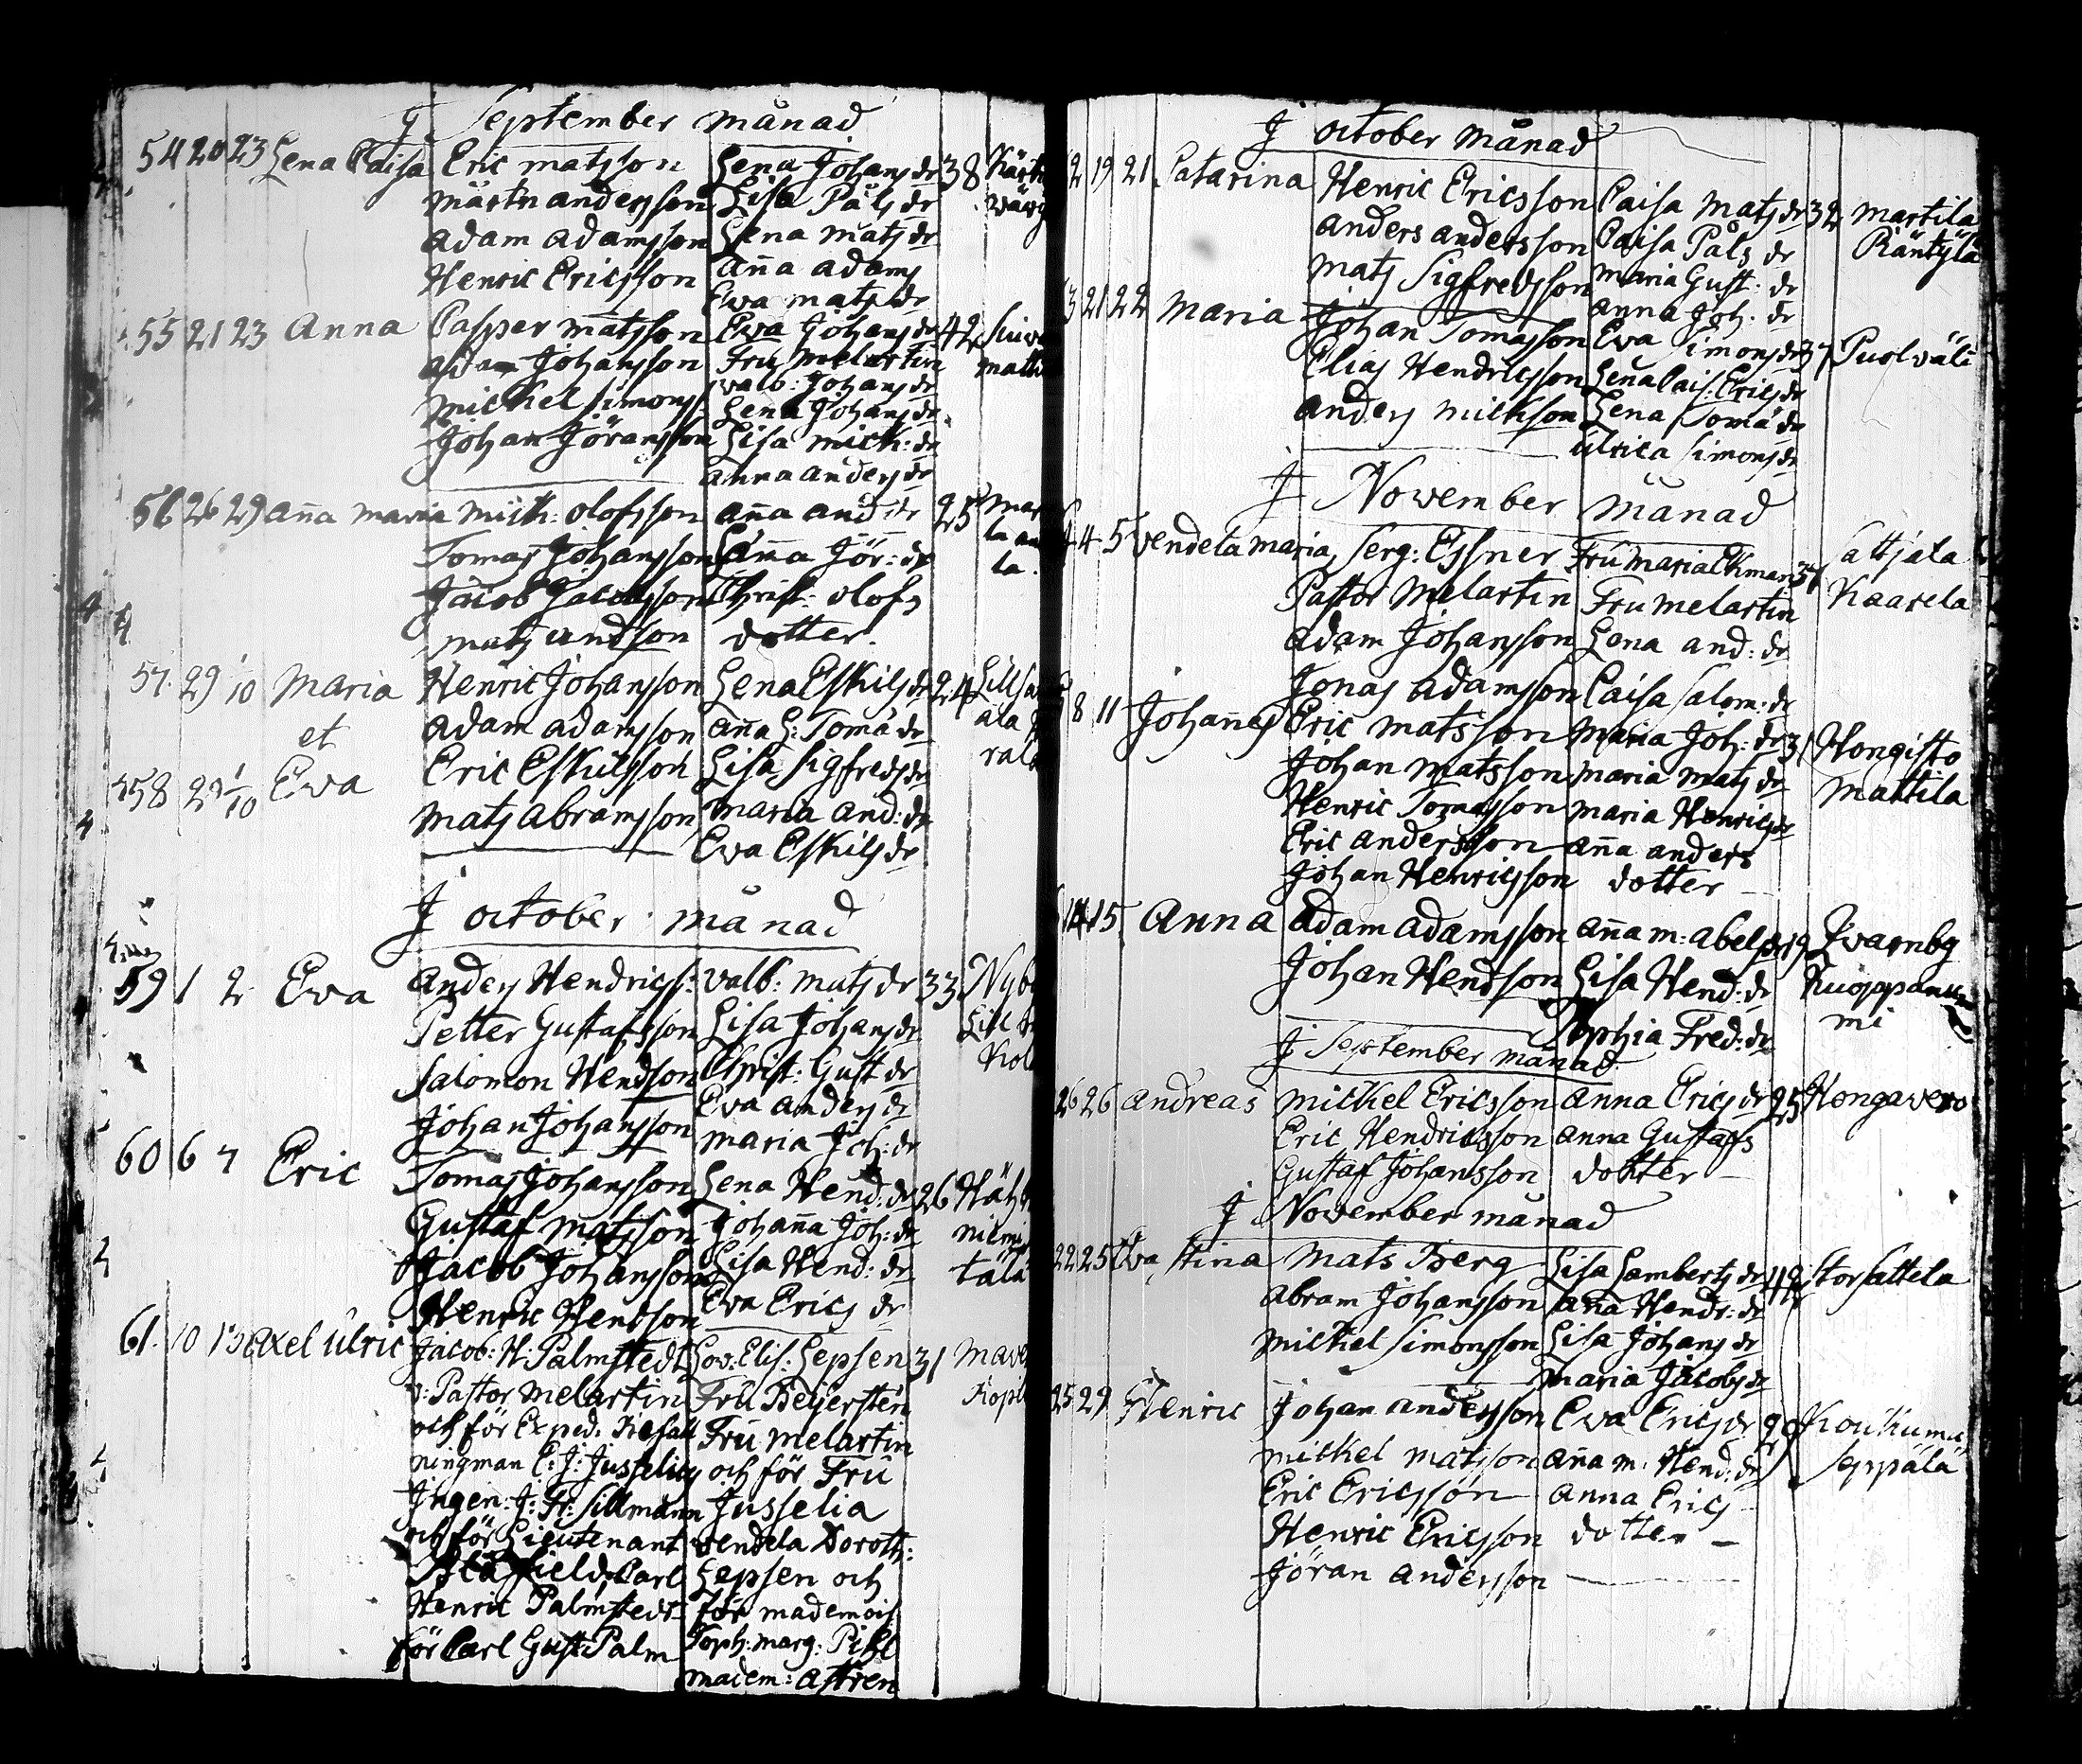 J September månad
54 20 23 Lena Caisa Eric Matsson Lena Johans dr 38
Mårtn andersson Lisa Påls dr
Adam Adamsson Lena Mats dr
Henric Ericsson Aña Adams
Ewa Mats dr
55 21 23 Anna Casper Matsson Ewa Johans dr 42
Adam Johansson Fru Melartin
Michel Simons Valb: Johans dr
Johan Göransson Lena Johans dr
Lisa Mich: dr
Anna Anders dr
56 26 29 Aña Maria Mich: Olofsson Aña And dr 25
Tomas Johansson Aña Jör: dr
Jacob Jacobsson Christ: Olofs
Mats Andson dotter
57 29 1/10 Maria Henric Johansson Lena Eskils dr 24
et Adam Adamsson Aña L: Toma dr
58 29 1/10 Ewa Eric Eskilsson Lisa Sigfreds dr
Mats Abramsson Maria And: dr
Ewa Eskils dr
J October månad
59 1 2 Ewa Anders Hendricss: Valb: Mats dr 33
Petter Gustafsson Lisa Johans dr
Salomon Hendson Christ: Gust dr
Johan Johansson Ewa Anders dr
Maria Joh: dr
60 6 7 Eric Tomas Johansson Lena Hend: dr 26
Gustaf Matsson Johaña Joh: dr niemi
Jacob Johansson Lisa Hend: dr tälä
Henric Hendson Ewa Erics dr
61 10 13 Axel Ulric Jacob: H: Palmstedt Lov: Elis: Lepsen 31
v: Pastor Melartin Fru Beijersten
och för Exped:
ningman C: J: Jusselius Fru Melartin
och för Fru
Ingen: J: Fr: Sillmann Jusselia
och för Lieutenant Vendela Doroth:
Carl Lepsen och
Henric Palmstedt för Mademois
för Carl Gust: Palm Soph: Marg: Pihl
Madem: Astren
J October Månad
2 19 21 Catarina Henric Ericsson Caisa Mats dr 32 Martila
Anders Andersson Caisa Påls dr Räntylä
Mats Sigfredsson Maria Gust: dr
Anna Joh: dr
3 21 22 Maria Johan Tomasson Ewa Simons dr 37 Puolväli
Elias Hendricsson Lena Cais: Erics dr
Anders Michson Lena Toma dr
Ulrica Simons dr
J November månad
4 5 Vendela Maria Serg: Essner Fru Maria Ekman Sattjala
Pastor Melartin Fru Melartin Kaarela
Adam Johansson Lena And: dr
Jonas Adamsson Caisa Salom: dr
8 11 Johanes Eric Matsson Maria Joh: dr 31 Hongisto
Johan Matsson Maria Mats dr Mattila
Henric Tomasson Maria Henrics dr
Eric Andersson Aña Anders
Johan Henricsson dotter
14 15 Anna Adam Adamsson Aña M: Abels dr 19 Qvarnby
Johan Hendson Lisa Hend: dr
Sophia Fred: dr mi
J September månad
26 26 Andreas Michel Ericsson Anna Erics dr 25 Hongavero
Eric Hendricsson Anna Gustafs
Gustaf Johansson dotter
J November månad
22 25 Eva Stina Mats Berg Lisa Lamberts dr 42 Storsattela
Abram Johansson Aña Hendr: dr
Michel Simonsson Lisa Johans dr
Maria Jacobs dr
25 29 Henric Johan Andersson Ewa Erics dr
Michel Matsson Aña M: Hend: dr Seppälä
Eric Ericsson Anna Erics
Henric Ericsson dotter
Jöran Andersson